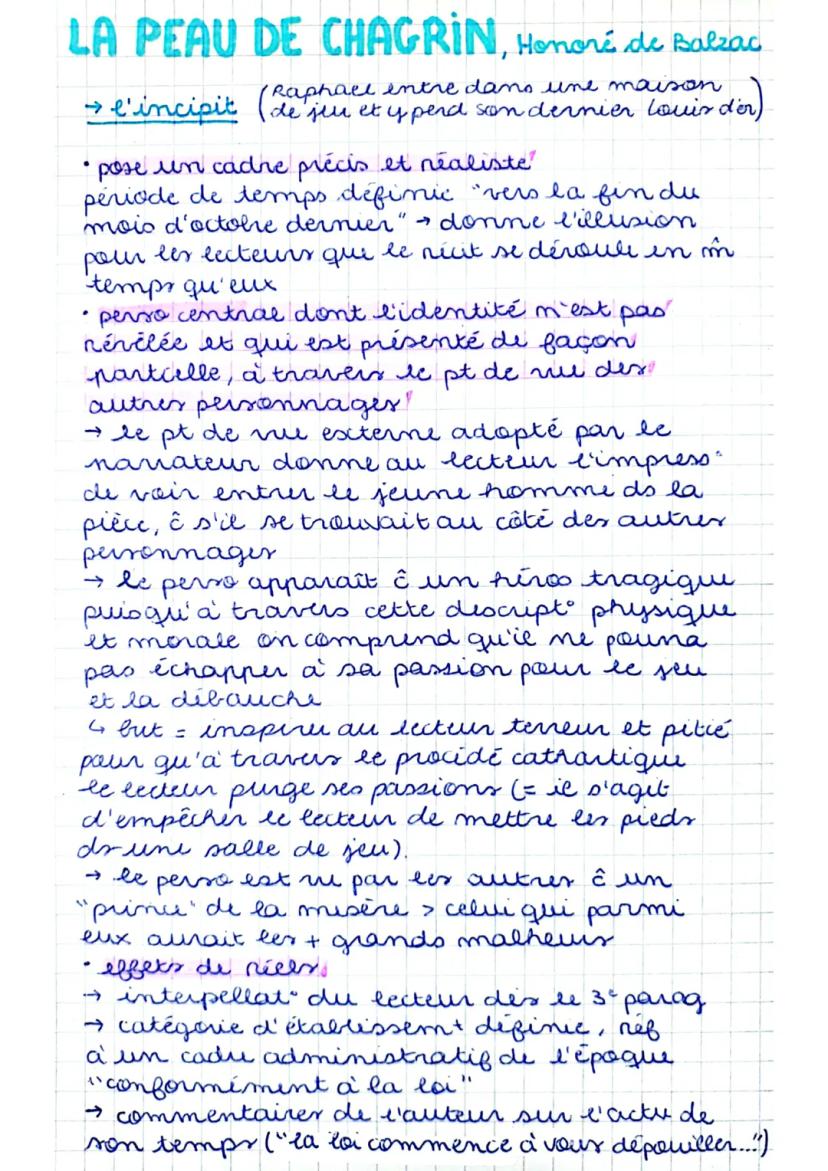 LA PEAU DE CHAGRIN, Honoré de Balzac
→ l'incipit (Raphael entre dans une maison
de jeu et y perd son dernier louis d'or)
• pose un cadre précis et réaliste
période de temps définie "vers la fin du
mois d'octobre dernier" → donne l'illusion
pour les lecteurs que le récit se déroule en m̂
temps qu'eux
• perso central dont l'identité n'est pas
révélée et qui est présenté de façon
partielle, à travers le pt de vue des
autres personnages
→ le pt de vue externe adopté par le
narrateur donne au lecteur l'impress°
de voir entrer le jeune homme ds la
pièce, ĉ s'il se trouvait au côté des autres
personnages
→ le perso apparaît ĉ un héros tragique
puisqu'à travers cette descript° physique
et morale on comprend qu'il ne pourra
pas échapper à sa passion pour le jeu
et la débauche
↳ but = inspirer au lecteur terreur et pitié
pour qu'à travers le procédé cathartique
le lecteur purge ses passions (= il s'agit
d'empêcher le lecteur de mettre les pieds
ds une salle de jeu).
→ le perso est vu par les autres ĉ un
"prince" de la misère > celui qui parmi
eux aurait les + grands malheurs
• effets de réels
→ interpellat° du lecteur dès le 3e parag
→ catégorie d'établissemt définie, réf
à un cadre administratif de l'époque
"conformément à la loi"
→ commentaires de l'auteur sur l'actu de
son temps ("la loi commence à vous dépouiller...")